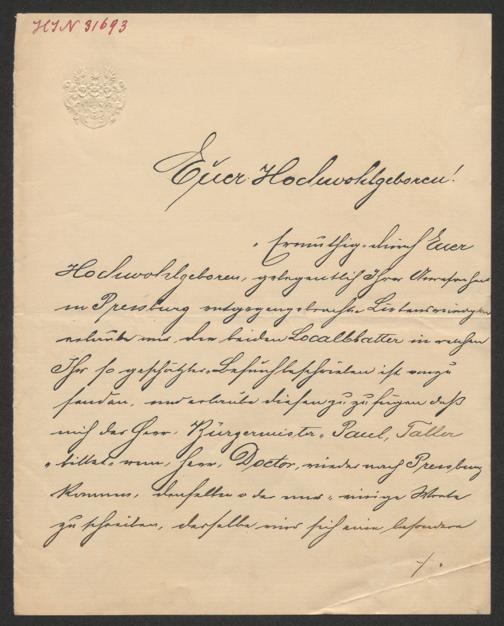 HIN 31693
Euer Hochwohlgeboren!
Ermuthigt durch Euer
Hochwohlgeboren, gelegentlich Ihrer Anwesenheit
in Pressburg entgegengebrachte
erlaube mir, die beiden Localblätter in welchen
Ihr so geschätzter Besuch beschrieben ist
senden, und erlaube diesen zuzufügen daß
mich der Herr Bürgermeister Paul, Taller
bittet wenn, Herr, Doctor, wieder nach Pressburg
kommen, demselben oder mir, einige Worte
zu schreiben, derselbe wird sich eine besondere
./.